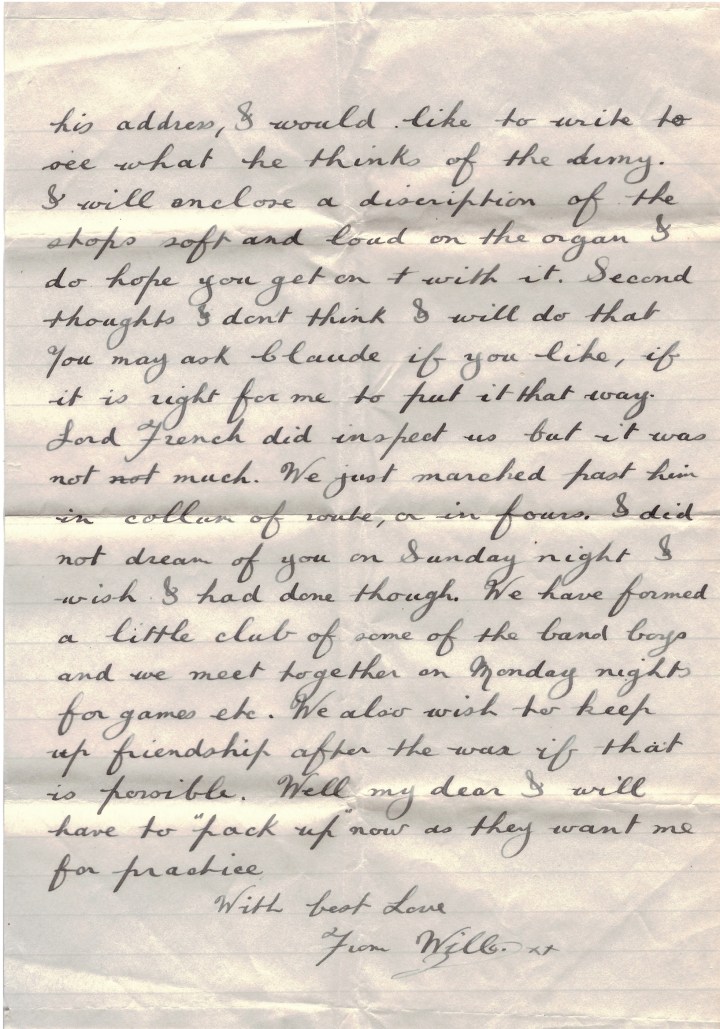 his address, I would like to write to
see what he thinks of the Army.
I will enclose a discription of the
stops soft and loud on the organ I
do hope you get on + with it. Second
thoughts I dont think I will do that
You may ask Claude if you like, if
it is right for me to put it that way.
Lord French did inspect us but it was
not not much. We just marched past him
in collum of route, or in fours. I did
not dream of you on Sunday night I
wish I had done though. We have formed
a little club of some of the band boys
and we meet together on Monday nights
for games etc. We also wish to keep
up friendship after the war if that
is possible. Well my dear I will
have to "pack up" now as they want me
for practice
With best Love
From Will. xx